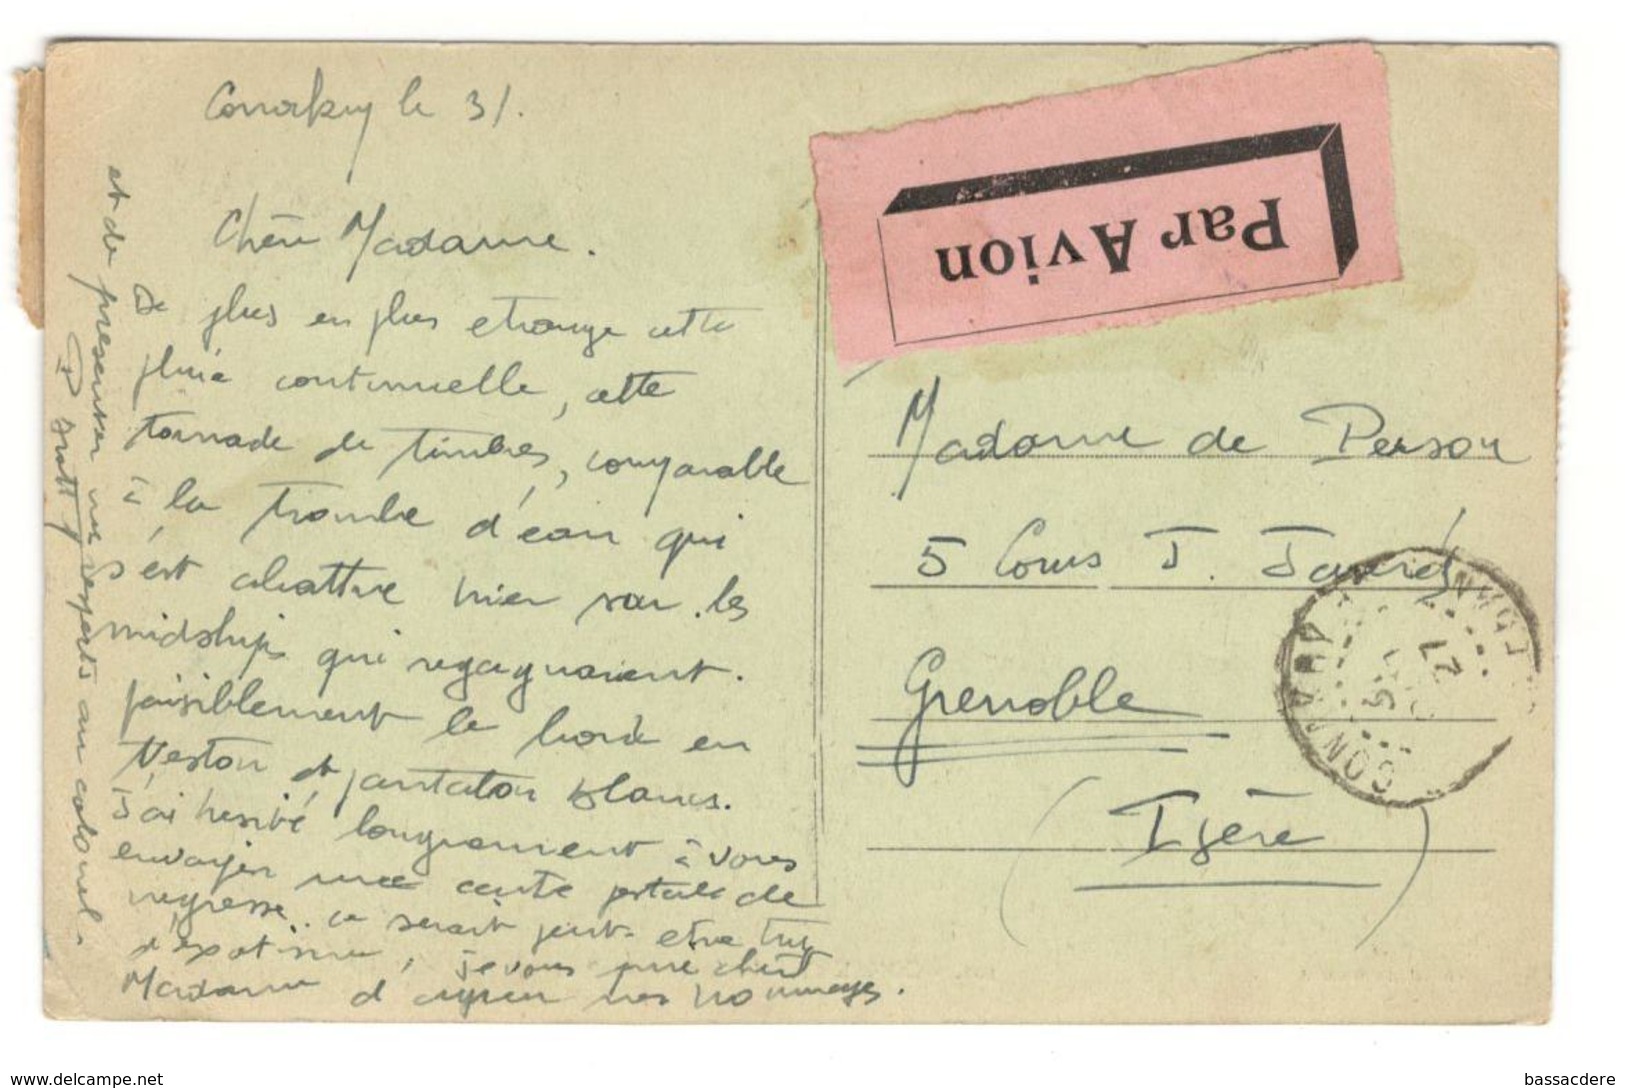 Conakry le 31.
Chère Madame.
De plus en plus etrange cette
pluie continuelle, cette
tornade de timbres, comparable
à la trombe d'eau qui
s'est abattue hier sur les
midships qui regagnaient
paisiblement le bord en
Veston et pantalon blancs.
J'ai hesité longuement à vous
envoyer une carte postale de
negresse. ce serait peut-etre trop
d'exotisme, je vous prie chère
Madame d'agreer mes hommages.
et de presenter mes respects au colonel.
Par Avion
Madame de Person
5 Cours J. Jaurés
Grenoble
(Isère)
CONAKRY
www.delcampe.net
bassacdere